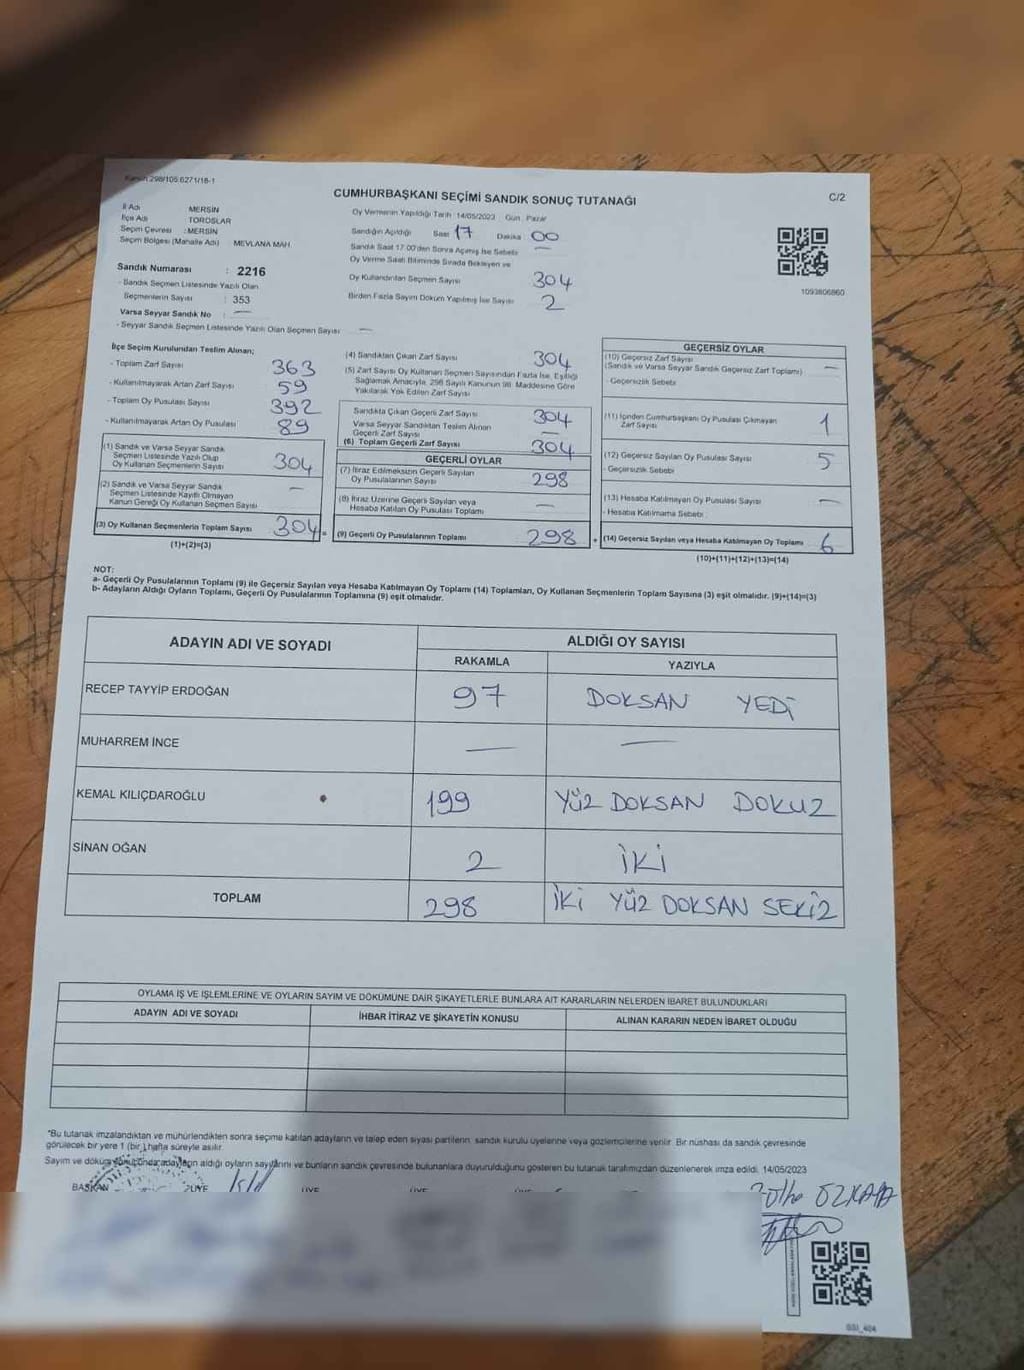 Kanun 298/105 6271/18-1
CUMHURBAŞKANI SEÇİMİ SANDIK SONUÇ TUTANAĞI
C/2
İl Adı MERSİN
İlçe Adı TOROSLAR
Seçim Çevresi : MERSİN
Seçim Bölgesi (Mahalle Adı) MEVLANA MAH.
Sandık Numarası : 2216
- Sandık Seçmen Listesinde Yazılı Olan
Seçmenlerin Sayısı : 353
Varsa Seyyar Sandık No : —
- Seyyar Sandık Seçmen Listesinde Yazılı Olan Seçmen Sayısı —
Oy Vermenin Yapıldığı Tarih 14/05/2023 Gün Pazar
Sandığın Açıldığı Saat 17 Dakika 00
Sandık Saat 17:00'den Sonra Açılmış İse Sebebi —
Oy Verme Saati Bitiminde Sırada Bekleyen ve
Oy Kullandırılan Seçmen Sayısı 304
Birden Fazla Sayım Döküm Yapılmış İse Sayısı 2
1093806860
İlçe Seçim Kurulundan Teslim Alınan;
- Toplam Zarf Sayısı 363
- Kullanılmayarak Artan Zarf Sayısı 59
- Toplam Oy Pusulası Sayısı 392
- Kullanılmayarak Artan Oy Pusulası 89
(1) Sandık ve Varsa Seyyar Sandık
Seçmen Listesinde Yazılı Olup
Oy Kullanan Seçmenlerin Sayısı 304
(2) Sandık ve Varsa Seyyar Sandık
Seçmen Listesinde Kayıtlı Olmayan
Kanun Gereği Oy Kullanan Seçmen Sayısı —
(3) Oy Kullanan Seçmenlerin Toplam Sayısı 304 =
(1)+(2)=(3)
(4) Sandıktan Çıkan Zarf Sayısı 304
(5) Zarf Sayısı Oy Kullanan Seçmen Sayısından Fazla İse, Eşitliği
Sağlamak Amacıyla, 298 Sayılı Kanunun 98. Maddesine Göre
Yakılarak Yok Edilen Zarf Sayısı —
Sandıkta Çıkan Geçerli Zarf Sayısı 304
Varsa Seyyar Sandıktan Teslim Alınan
Geçerli Zarf Sayısı —
(6) Toplam Geçerli Zarf Sayısı 304
GEÇERLİ OYLAR
(7) İtiraz Edilmeksizin Geçerli Sayılan
Oy Pusulasının Sayısı 298
(8) İtiraz Üzerine Geçerli Sayılan veya
Hesaba Katılan Oy Pusulası Toplamı —
(9) Geçerli Oy Pusulalarının Toplamı 298 +
GEÇERSİZ OYLAR
(10) Geçersiz Zarf Sayısı
(Sandık ve Varsa Seyyar Sandık Geçersiz Zarf Toplamı) —
- Geçersizlik Sebebi
(11) İçinden Cumhurbaşkanı Oy Pusulası Çıkmayan
Zarf Sayısı 1
(12) Geçersiz Sayılan Oy Pusulası Sayısı 5
- Geçersizlik Sebebi
(13) Hesaba Katılmayan Oy Pusulası Sayısı —
- Hesaba Katılmama Sebebi :
(14) Geçersiz Sayılan veya Hesaba Katılmayan Oy Toplamı 6
(10)+(11)+(12)+(13)=(14)
NOT:
a- Geçerli Oy Pusulalarının Toplamı (9) ile Geçersiz Sayılan veya Hesaba Katılmayan Oy Toplamı (14) Toplamları, Oy Kullanan Seçmenlerin Toplam Sayısına (3) eşit olmalıdır. (9)+(14)=(3)
b- Adayların Aldığı Oyların Toplamı, Geçerli Oy Pusulalarının Toplamına (9) eşit olmalıdır.
ADAYIN ADI VE SOYADI
ALDIĞI OY SAYISI
RAKAMLA YAZIYLA
RECEP TAYYİP ERDOĞAN 97 DOKSAN YEDİ
MUHARREM İNCE — —
KEMAL KILIÇDAROĞLU 199 YÜZ DOKSAN DOKUZ
SİNAN OĞAN 2 İKİ
TOPLAM 298 İKİ YÜZ DOKSAN SEKİZ
OYLAMA İŞ VE İŞLEMLERİNE VE OYLARIN SAYIM VE DÖKÜMÜNE DAİR ŞİKAYETLERLE BUNLARA AİT KARARLARIN NELERDEN İBARET BULUNDUKLARI
ADAYIN ADI VE SOYADI İHBAR İTİRAZ VE ŞİKAYETİN KONUSU ALINAN KARARIN NEDEN İBARET OLDUĞU
"Bu tutanak imzalandıktan ve mühürlendikten sonra seçime katılan adayların ve talep eden siyasi partilerin, sandık kurulu üyelerine veya gözlemcilerine verilir. Bir nüshası da sandık çevresinde
görülecek bir yere 1 (bir) hafta süreyle asılır.
Sayım ve döküm sonucunda adayların aldığı oyların sayılarını ve bunların sandık çevresinde bulunanlara duyurulduğunu gösteren bu tutanak tarafımızdan düzenlenerek imza edildi. 14/05/2023
BAŞKAN ÜYE ÜYE ÜYE ÜYE
ÖZKAYA